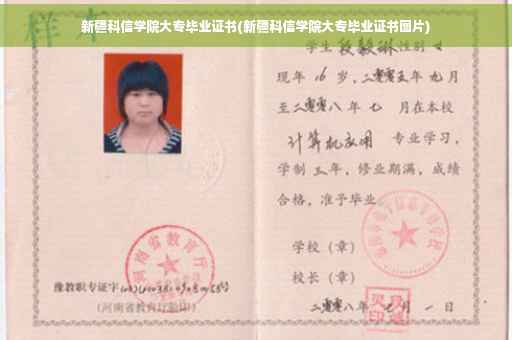 新疆科信学院大专毕业证书(新疆科信学院大专毕业证书图片)
样本
学生 段毅琳 性别 女
现年 16 岁，二零零五年 九月
至二零零八年 七 月在本校
计算机应用 专业学习，
学制 三 年，修业期满，成绩
合格，准予毕业
学校（章）
校长（章）
河南省教育厅
豫教职专证字
（河南省教育厅验印）
二零零八年 七 月 一 日